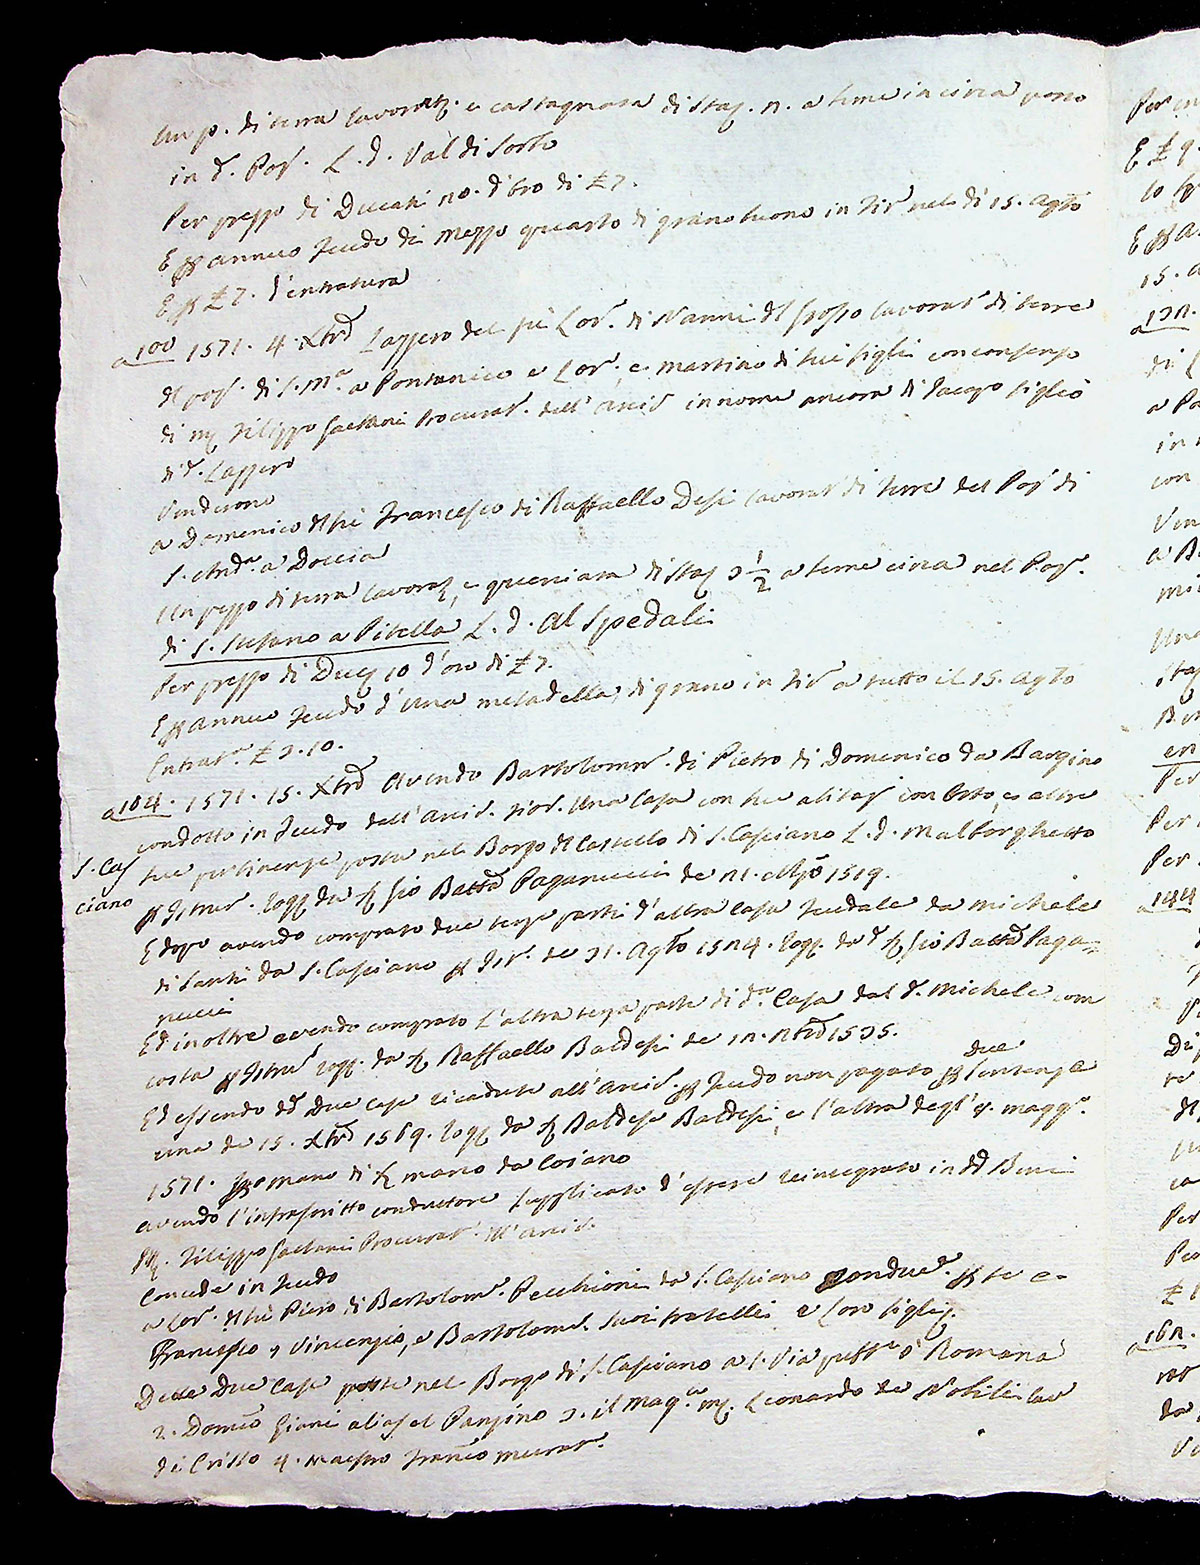 Un p. di terra lavorat. e castagnata di stag. n. a seme in circa posto
in d. Pop. L. d. Val di Sorbo
Per prezzo di Ducati no. d'oro di £ 7.
E p annuo feudo di mezzo quarto di grano buono in Fir nel dì 15. Agto
E p £ 7. d'entratura
a 100 1571. 4. Xbre Lazzero del fu Lor. di Nanni del grosso lavorat di terre
del pop. di S. Ma. a Pontanico e Lor. e martino di lui figli con consenso
di m Filippo Gaettani Procurat. dell' Arciv in nome ancora di Jacopo figlio
di d. Lazzero
Venderono
a Domenico del fu Francesco di Raffaello Desi lavorat di terre del Pop di
S. Anda. a Doccia
Un pezzo di terra lavorat, e querciata di stag 3 1/2 a seme circa nel Pop.
di S. Stefano a Pitella L. d. al Spedali
Per prezzo di Duc 10 d'oro di £ 7.
E p annuo feudo d'una metadella di grano in Fir a tutto il 15. Agto
Entrat. £ 3. 10.
a 104. 1571. 15. Xbre Avendo Bartolomm. di Pietro di Domenico da Bargino
condotto in feudo dell' Arciv. Fior. Una Casa con sue abitaz con Orto, e altre
S. Cas
ciano
sue pertinenze poste nel Borgo del Castello di S. Casciano L. d. Malborghetto
p Istrum. rog. da S Gio Batta Paganucci de 21. Mgo 1519.
E dopo avendo comprato due terze parti d'altra Casa feudale da Michele
di Santi da S. Casciano p Istr. de 31. Agto 1524. rog. da d. S Gio Batta Paga=
nucci
Ed inoltre avendo comprato l'altra terza parte di da. Casa dal d. Michele com
costa p Istru rog. da S Raffaello Baldesi de 12. Nbre 1535.
Ed essendo dd Due case ricadute all' Arciv. p feudo non pagato p due sentenze
una de 15. Xbre 1569. rog da S Baldese Baldesi, e l'altra degl' 8. magg.
1571. p mano di S mario da Coiano
avendo l'infrascritto conduttore supplicato d'essere reintegrato in dd Beni
M. Filippo Gaettani Procurat. dell' Arciv.
Concede in feudo
a Lor. del fu Piero di Bartolom. Pecchioni da S. Casciano conduc. p se e
Francesco, Vincenzio, e Bartolomm. suoi fratelli e loro figli
Dette Due Case poste nel Borgo di S. Casciano a 1. Via pubb.ca o' Romana
2. Domco Giani alias el Panzino 3. il Mag.co m. Leonardo de Nobili lav
di Cristo 4. maestro Franco murat.